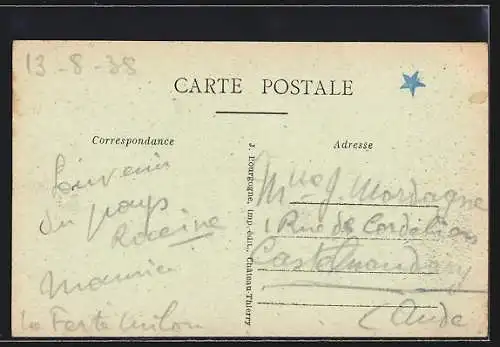 13-8-38
CARTE POSTALE
Correspondance
Adresse
Souvenir
du pays
Racine
Maurice
La Ferté Milon
J. Bourgogne, imp.-édit., Château-Thierry
J. Mordagne
1 Rue de Cordeliers
Castelnaudary
(Aude)